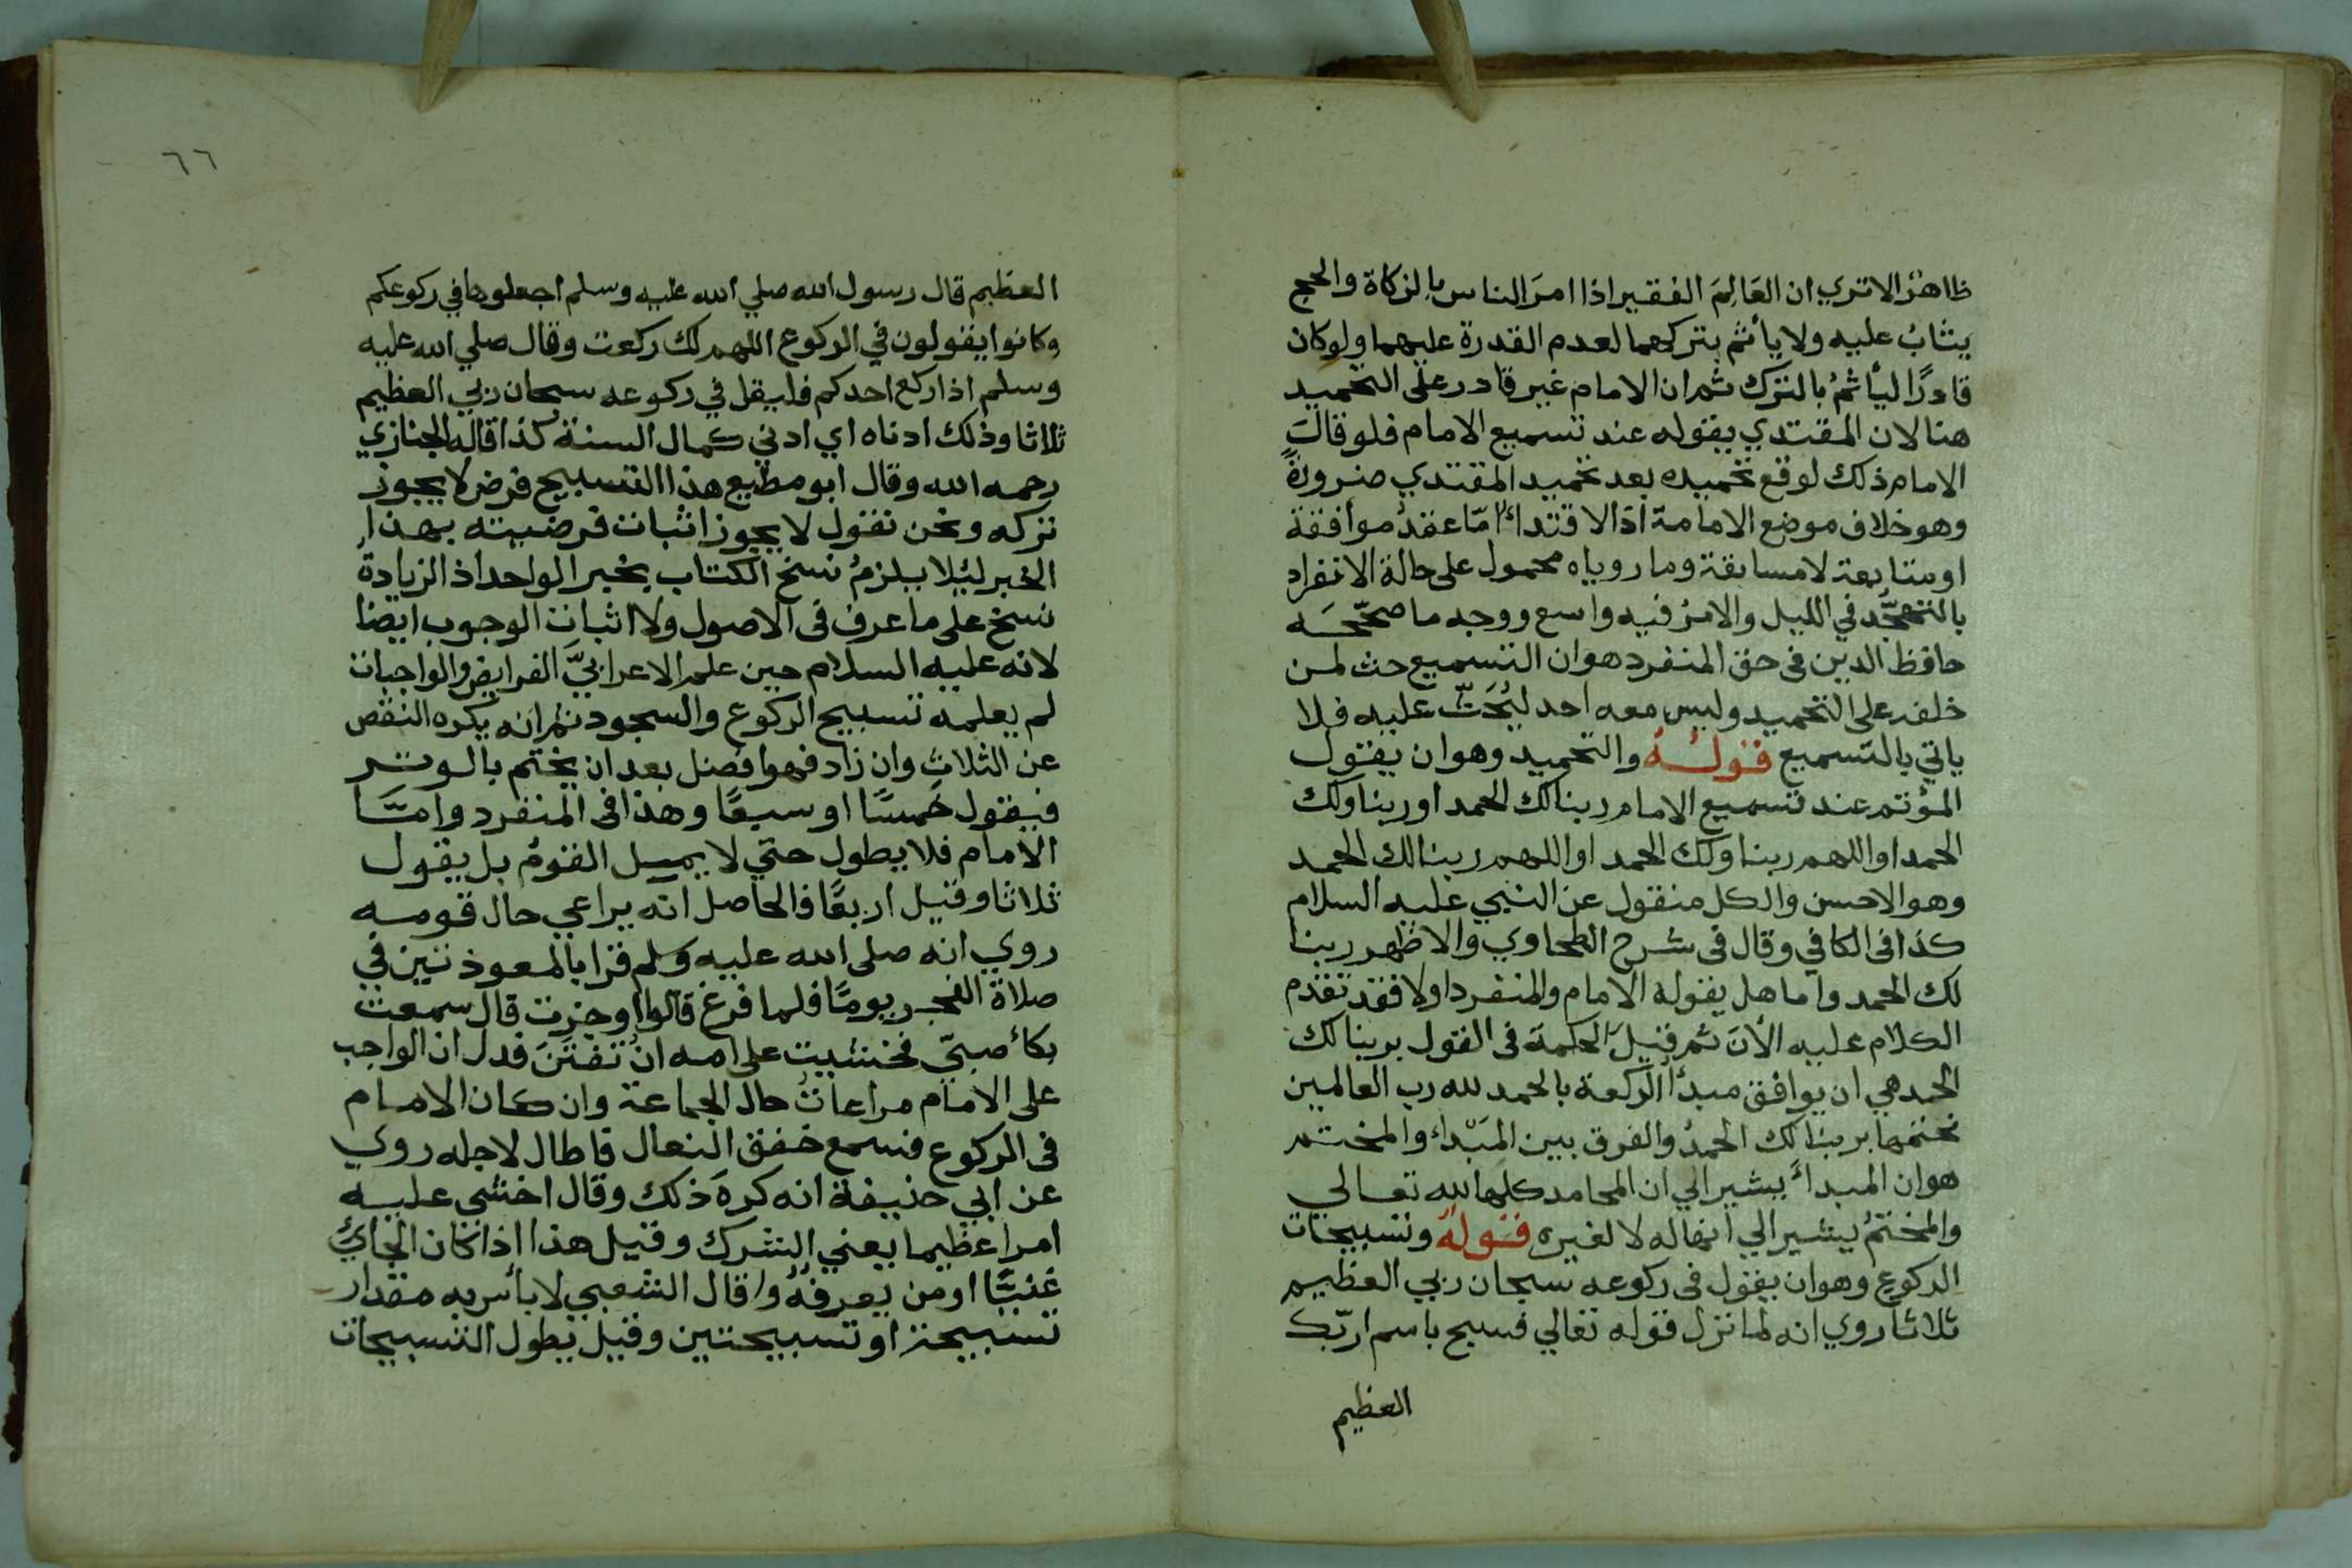 ظاهرٌ الا تري ان العَالِمَ الفقير اذا امرَ الناس بالزكاة والحج
يثابُ عليه ولا يأثم بتركهما لعدم القدرة عليهما ولو كان
قادرًا ليأثمُ بالترك ثم ان الامام غير قادر على التحميد
هنا لان المقتدي يقوله عند تسميع الامام فلو قالَ
الامام ذلك لوقع تحميده بعد تحميد المقتدي ضرورةً
وهو خلاف موضع الامامة اذ الاقتداءُ امّا عقدُ موافقة
او متابعة لا مسابقة وما روياه محمول على حالة الانفراد
بالتهجّد في الليل والامرُ فيه واسع ووجه ما صحّحَـه
حافظ الدين فى حق المنفرد هو ان التسميع حث لمن
خلفه على التحميد وليس معه احد ليُحَثّ عليه فلا
ياتي بالتسميع قولـهُ والتحميد وهو ان يقول
المؤتم عند تسميع الامام ربنا لك الحمد او ربنا ولك
الحمد او اللهم ربنا ولك الحمد او اللهم ربنا لك الحمد
وهو الاحسن والكل منقول عن النبي عليه السلام
كذا فى الكافي وقال فى شرح الطحاوي والاظهر ربنا
لك الحمد واما هل يقوله الامام والمنفرد اولا فقد تقدم
الكلام عليه الأن ثم قيلَ الحكمة فى القول بربنا لك
الحمد هي ان يوافق مبدأ الركعة بالحمد لله رب العالمين
مختمها بربنا لك الحمدُ والفرق بين المَبْدا والمختتم
هو ان المبدأ يشير الي ان المحامد كلها لله تعالي
والمختتمُ يشير الي انها له لا لغيره قولهُ وتسبيحات
الركوع وهو ان يقول فى ركوعه سبحان ربي العظيم
ثلاثا روي انه لما نزل قوله تعالي فسبح باسم ربّك
العظيم
٦٦
العظيم قال رسول الله صلي الله عليه وسلم اجعلوها في ركوعكم
وكانوا يقولون في الركوع اللهم لك ركعت وقال صلي الله عليه
وسلم اذا ركع احدكم فليقل في ركوعه سبحان ربي العظيم
ثلاثا وذلك ادناه اي ادني كمال السنة كذا قاله الجنازي
رحمه الله وقال ابو مطيع هذا التسبيح فرض لا يجوز
تركه ونحن نقول لا يجوز اثبات فرضيته بهذا
الخبر ليُلا يلزمُ نسخ الكتاب بخبر الواحد اذ الزيادة
نسخ على ما عرف فى الاصول ولا اثبات الوجوب ايضا
لانه عليه السلام حين علم الاعرابيَّ الفرايض والواجبات
لم يعلمه تسبيح الركوع والسجود ثم انه يكره النقص
عن الثلاث وان زاد فهو افضل بعد ان يختم بالوتر
فيقول خمسًا او سبعًا وهذا فى المنفرد وامّـا
الامام فلا يطول حتي لا يميل القومُ بل يقول
ثلاثا وقيل اربعًا فالحاصل انه يراعي حال قومه
روي انه صلي الله عليه وسلم قرا بالمعوذتين في
صلاة الفجر يومًا فلما فرغ قالوا اوجزت قال سمعت
بكاءَ صبيّ فخشيت على امه انْ تفتتنَ فدل ان الواجب
على الامام مراعاتُ حال الجماعة وان كان الامام
فى الركوع فسمع خفق النعال فاطال لاجله روي
عن ابي حنيفة انه كره ذلك وقال اخشي عليه
امرا عظيما يعني الشرك وقيل هذا اذا كان الجائي
غنيًّا او من يعرفهُ واقال الشعبي لا باس به مقدار
تسبيحة او تسبيحتين وقيل يطول التسبيحات